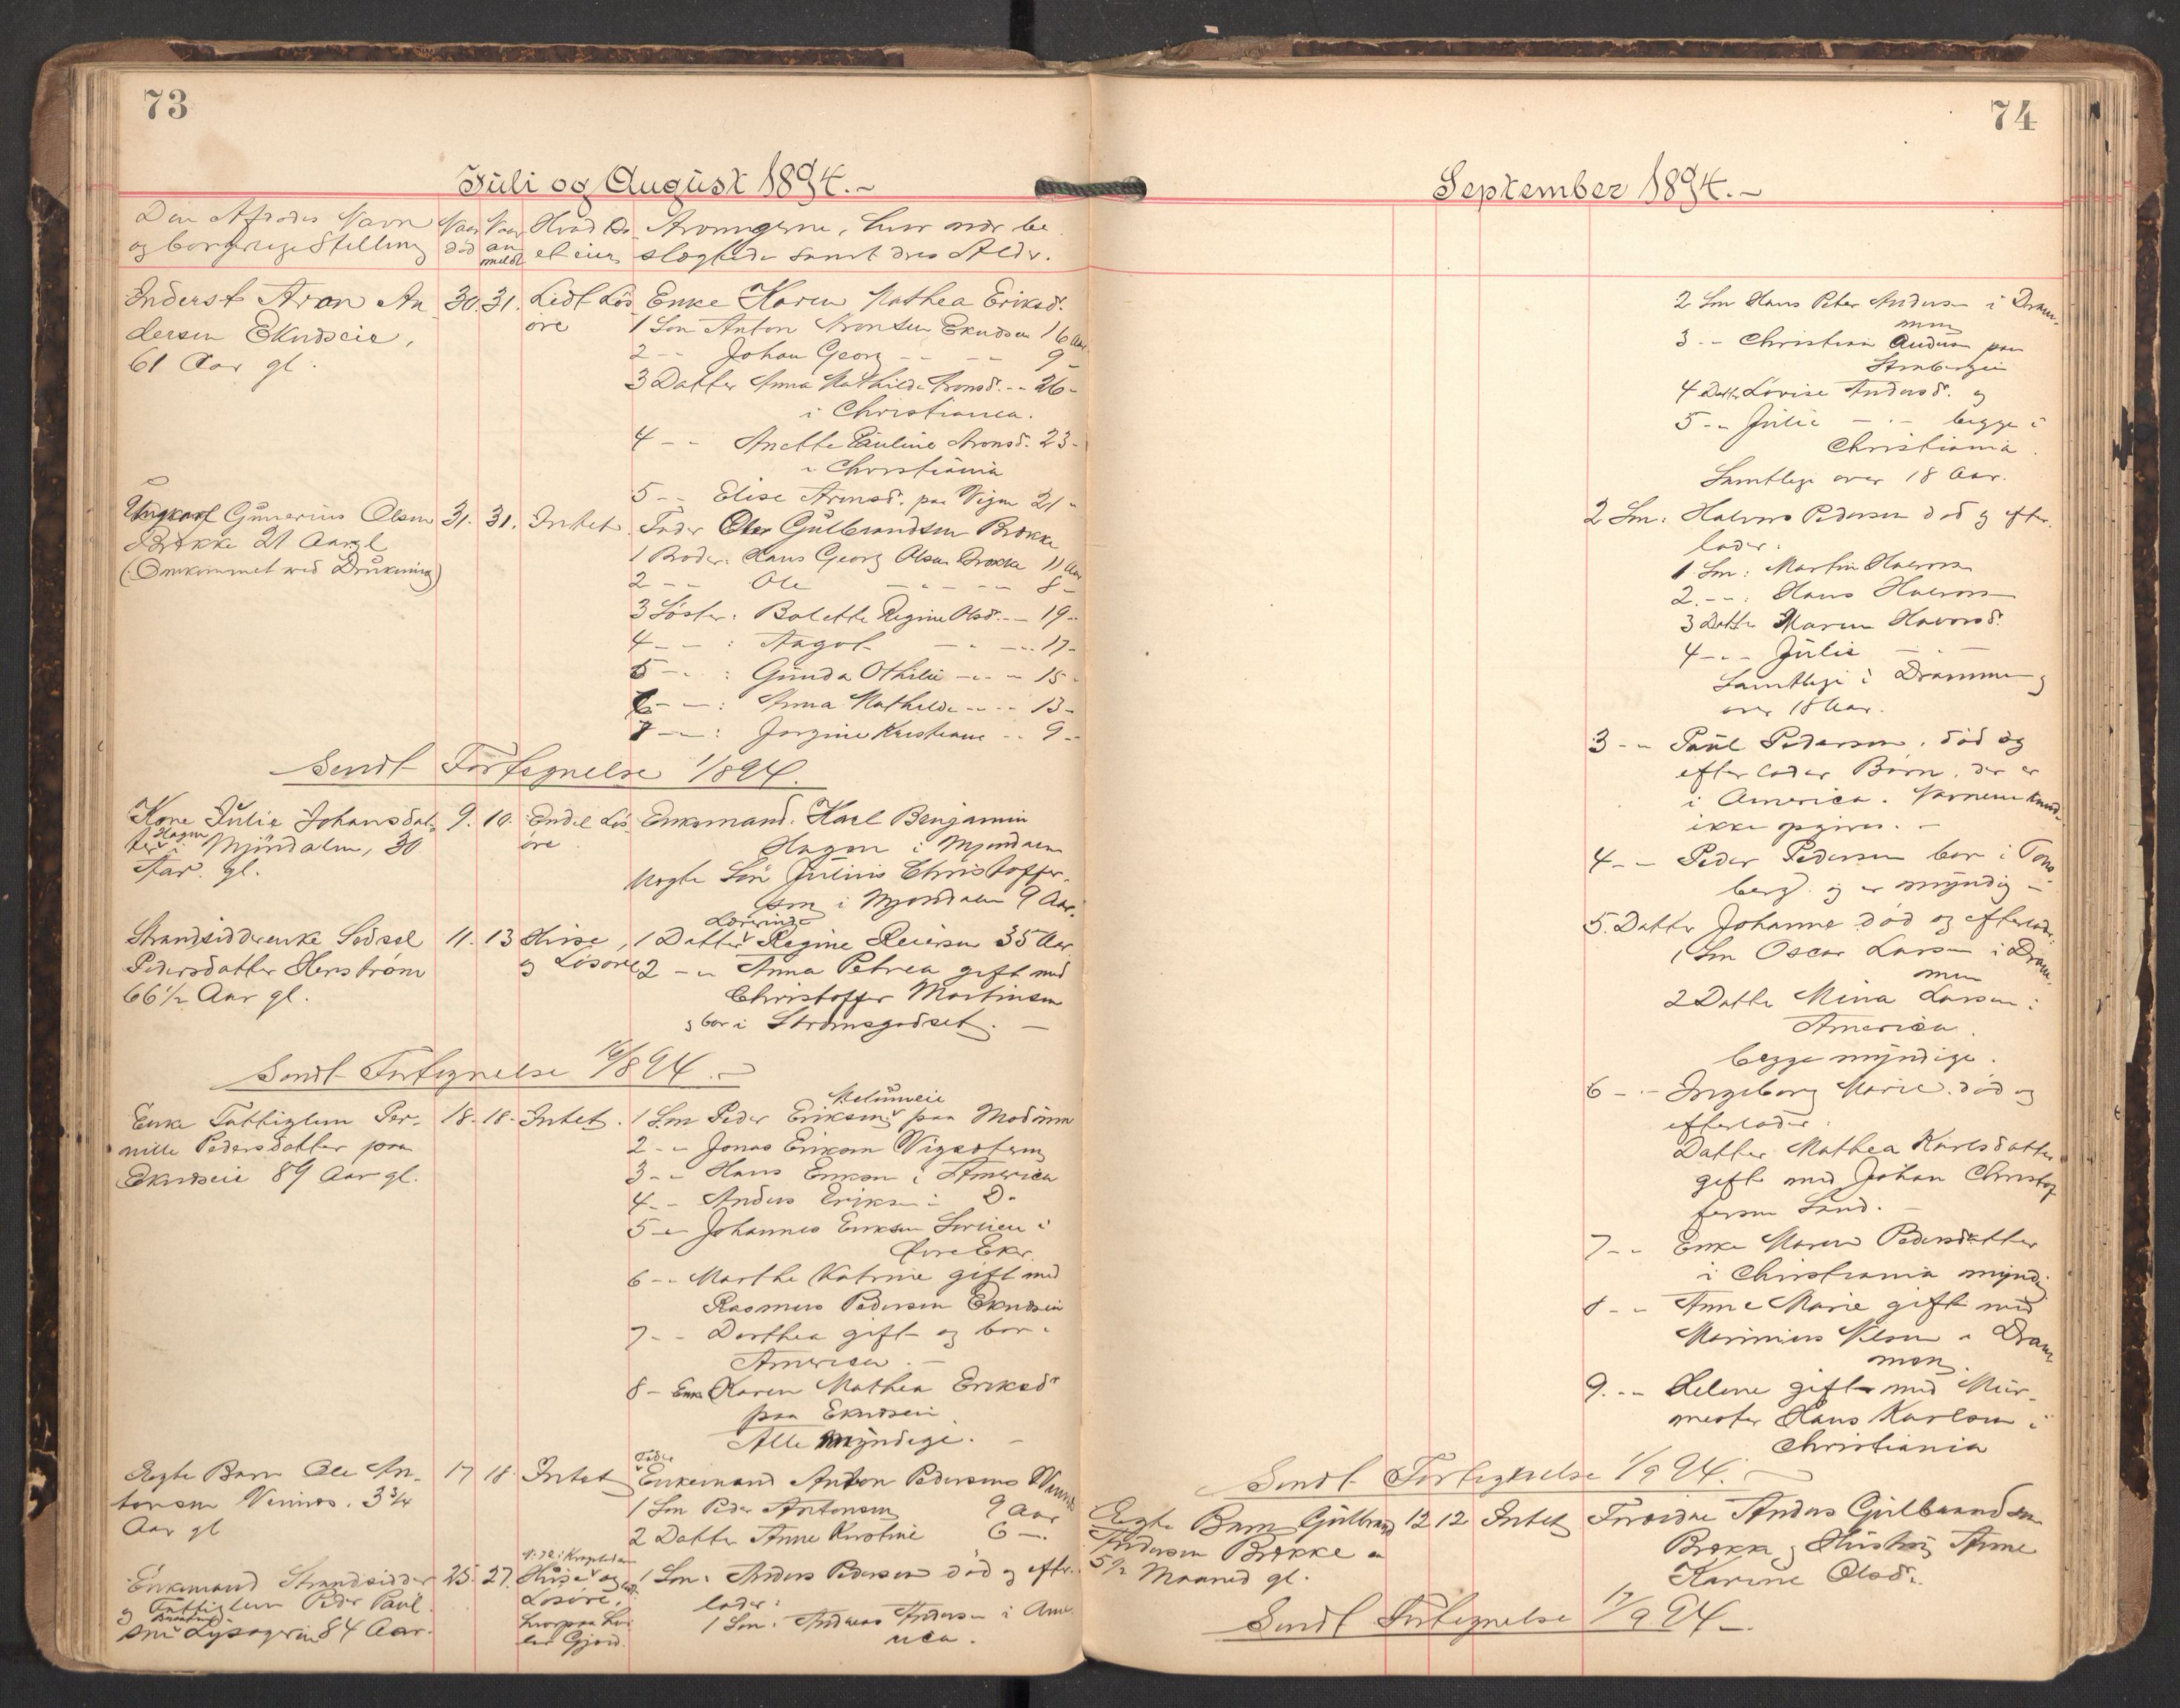 73
Juli og August 1894.-
Den Afdødes Navn og borgerlige Stilling
Naar død
Naar anmeldt
Hvad Do eleier
Arvingerne, hvor nær beslægtede samt deres Alder.
Inderst Aron Andersen Ekndseie, 61 Aar gl.
30. 31. Lidt Løsøre
Enke Karen Mathea Eriksd.
1 Søn Anton Aronsen Ekndseie 16 Aar
2 - - Johan Georg - - - - 9 -
3 Datter Anna Mathilde Aronsd. - - 26 -
i Christiania.
4 - - Anette Pauline Aronsd. 23 -
i Christiania
5 - - Elise Aronsd. paa Vigen 21 -
Ungkarl Gunerius Olsen Brekke 21 Aar gl
(Omkommet ved Drukning)
31. 31. Intet
Fader Ole Gulbrandsen Brekke
1 Broder: Hans Georg Olsen Brekke 11 Aar
2 - - Ole - - - - 8 -
3 Søster: Bolette Regine Olsd. - - 19 -
4 - - : Aagot - - - - 17 -
5 - - : Gunda Othilie - - - 15 -
6 - - : Anna Mathilde - - - 13 -
7 - - : Jorgine Kristiane - - 9 -
Sendt Fortegnelse 1/8 94.
Kone Julie Johansdatter Hagen i Mjøndalen, 30 Aar gl.
9. 10. Endel Løsøre
Enkemand Karl Benjamin
Hagen i Mjøndalen
Uægte Søn Julius Christoffersen i Mjøndalen 9 Aar.
Strandsidderenke Sidsel
Pedersdatter Herstrøm
66 1/2 Aar gl.
11. 13 Huse, og Løsøre
1 Datter Lærerinde Regine Reiersen 35 Aar
2 - - Anna Petrea gift med
Christoffer Martinsen
og bor i Strømsgodset. -
Sendt Fortegnelse 16/8 94. -
Enke Fattiglem Pernille Pedersdatter paa
Ekndseie 89 Aar gl.
18. 18. Intet.
1 Søn Peder Eriksen Melumeie paa Modum
2 - - Jonas Eriksen Vigsøtern
3 - - Hans Eriksen i America
4 - - Anders Eriksen i Do
5 - - Johannes Eriksen i
Øvre Eker.
6 - - Marthe Katrine gift med
Rasmus Pedersen Ekndseie
7 - - Dorthea gift og bor i
America. -
8 - Enke Karen Mathea Eriksdr
paa Ekndseie
Alle Myndige. -
Ægte Barn Ole Antonsen 3 3/4
Aar gl
17 18. Intet
Fader
Enkemand Anton Pedersen
1 Søn Peder Antonsen 9 Aar
2 Datter Anne Kirstine 6 -.
Enkemand Strandsidder
og Fattiglem Peder Paulsen 84 Aar.
25. 27. Huse og
Løsøre,
1 Søn: Anders Pedersen død og efterlader:
1 Søn: Andreas Andersen i America.
74
September 1894.-
2 Søn Hans Peter Andersen i Drammen
3 - - Christian Andersen paa
4 Datter Lovise Andersd. og
5 - - Julie - - begge i
Christiania.
Samtlige over 18 Aar.
2 Søn: Halvor Pedersen død og efterlader:
1 Søn: Martin Halvorsen
2. - - : Hans Halvorsen
3 Datter Maren Havorsd.
4 - - - Julie - -
Samtlige i Drammen og
over 18 Aar.
3 - - Paul Pedersen, død og
efterlader Børn, der er
i America. Navnene kunde
ikke opgives. -
4 - - Peder Pedersen bor i Tønsberg og er myndig -
5. Datter Johanne død og efterlader:
1 Søn Oscar Larsen i Drammen
2 Datter Mina Larsen i
America.
begge myndige.
6 - - Ingeborg Marie død og
efterlader:
Datter Mathea Karlsdatter
gift med Johan Christoffersen Sand. -
7 - - Enke Maren Pedersdatter
i Christiania myndig
8 - - Anne Marie gift med
Marinius Nilsen i Drammen.
9. - - Helene gift med Murmester Hans Karlsen i
Christiania
Sendt Fortegnelse 1/9 94. -
Ægte Barn Gulbrand
Andersen Brekke
5 1/2 Maaned gl.
12 12 Intet
Forældre Anders Gulbrandsen
Brekke og Hustru Anne
Karine Olsdr.
Sendt Fortegnelse 17/9 94 -.